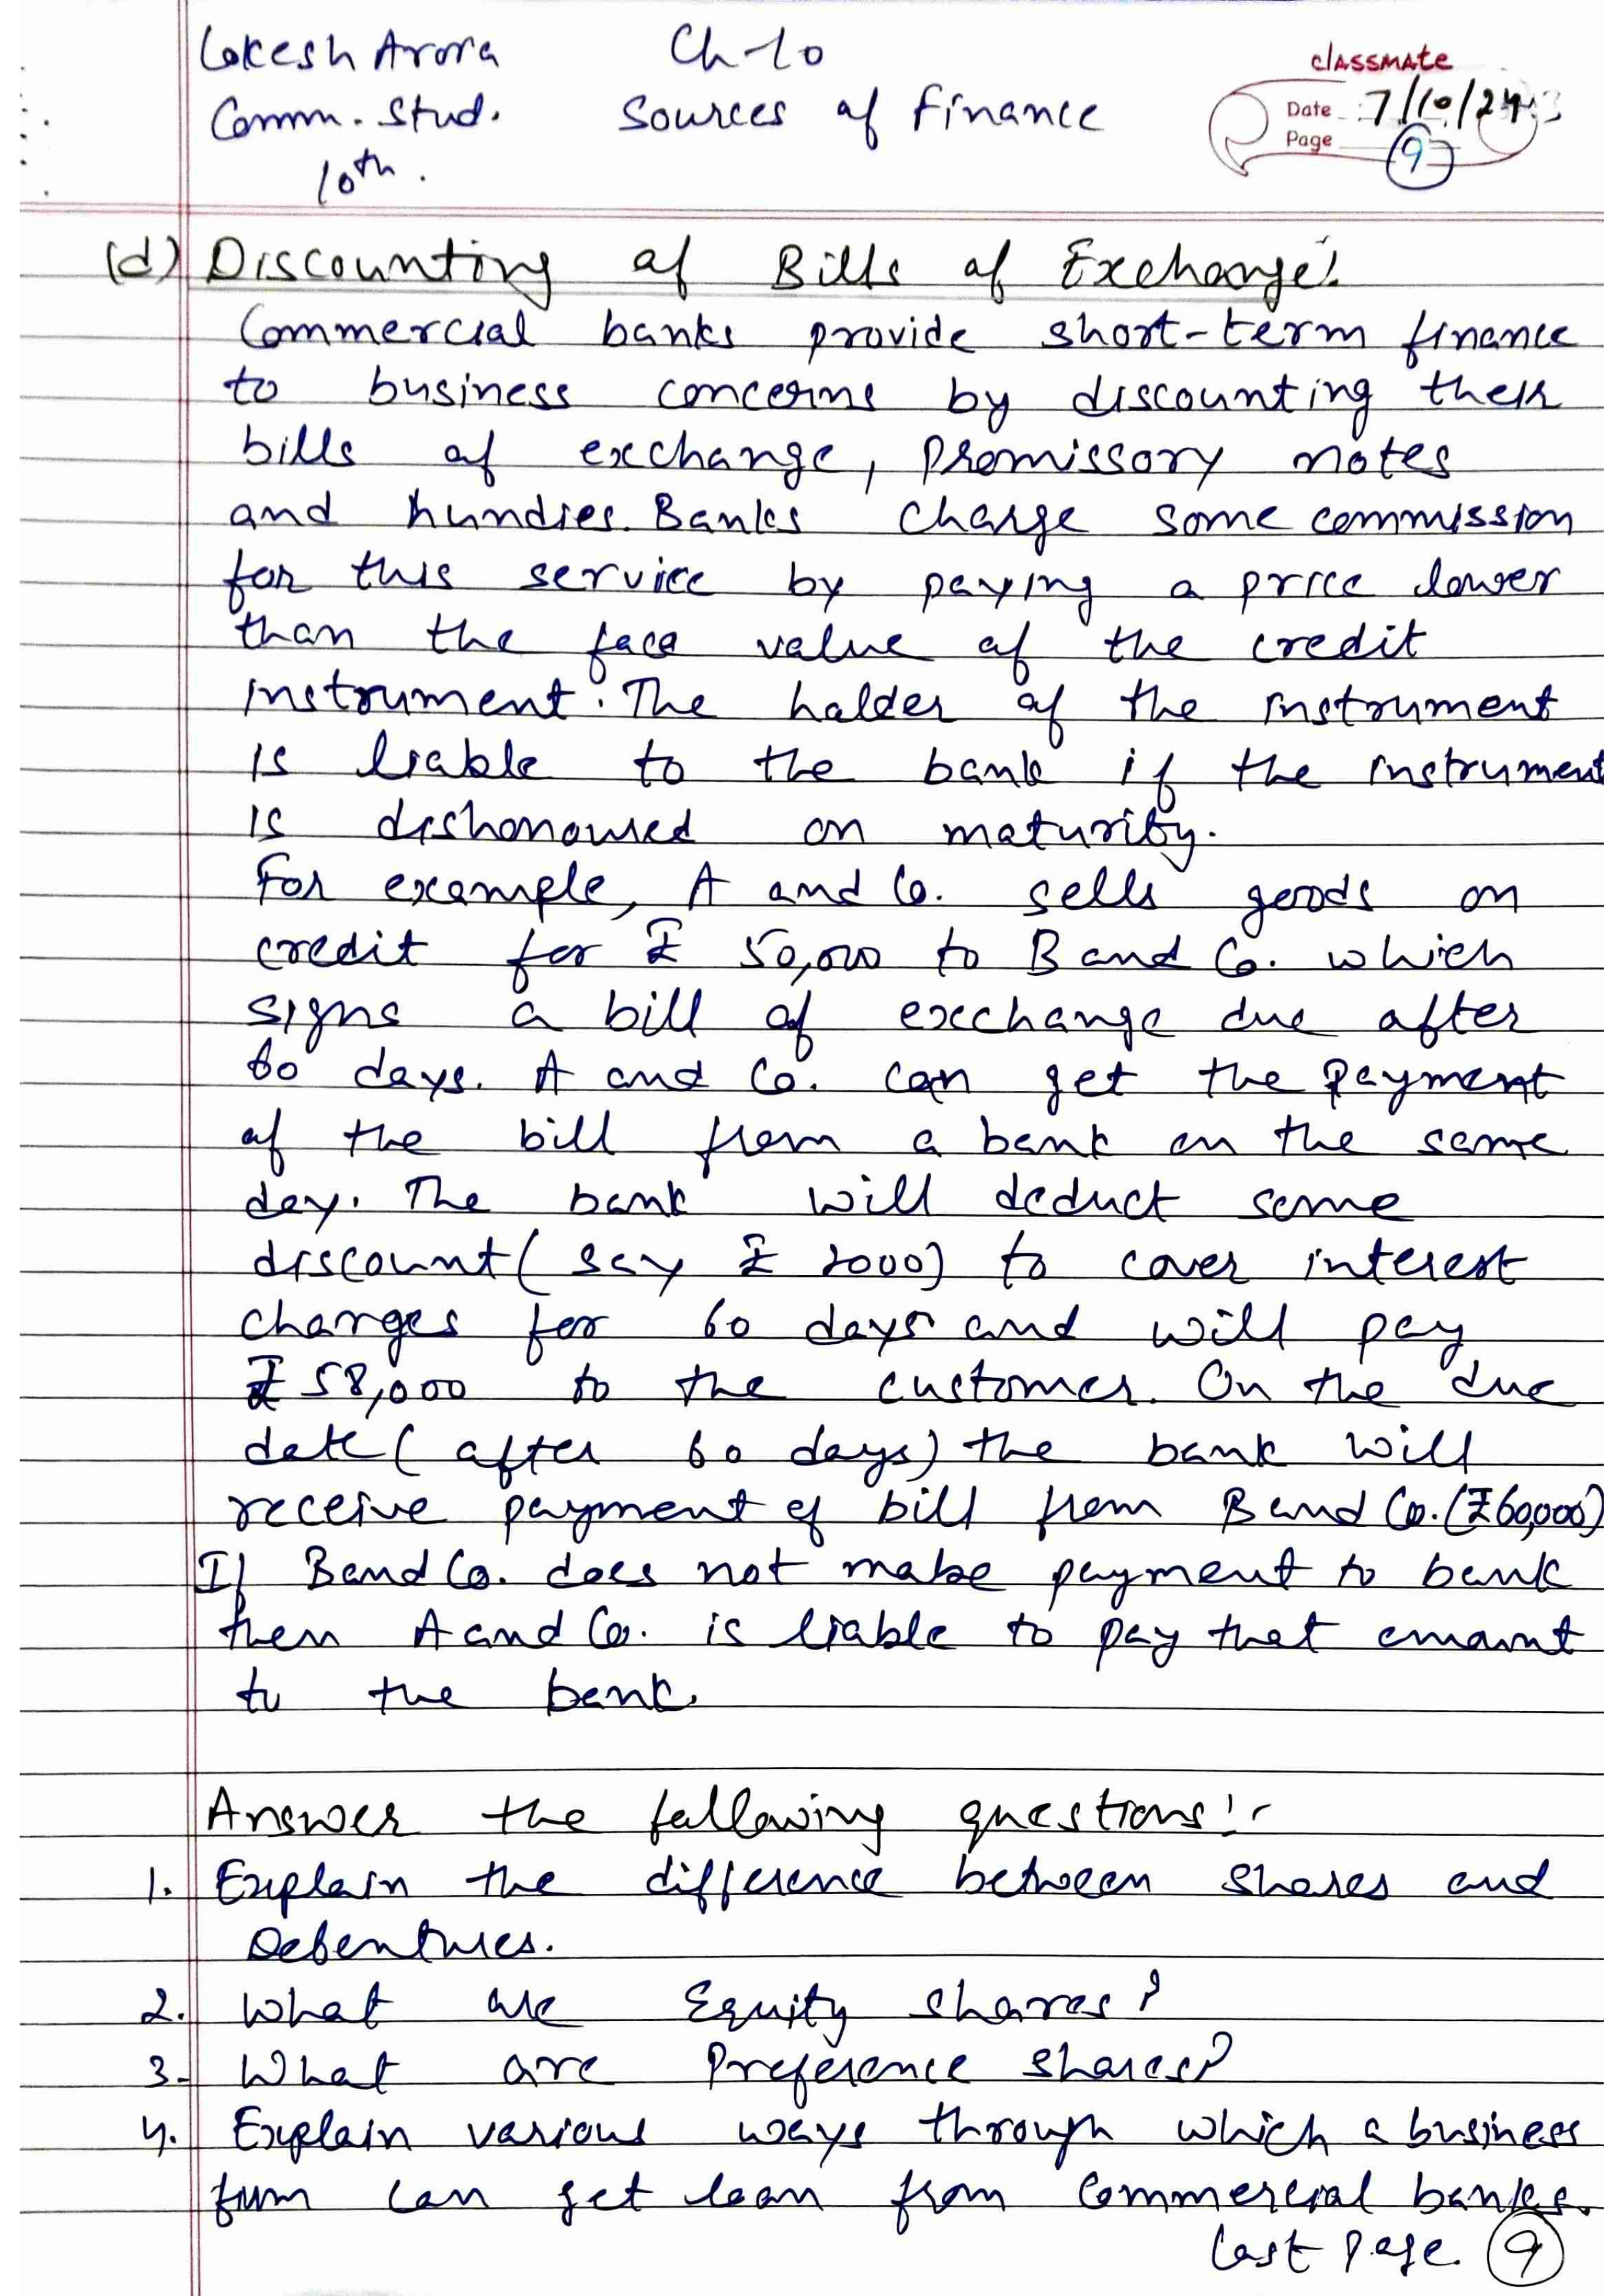 Lokesh Arora Ch-10
classmate
Comm. Stud. Sources of Finance
Date 7/10/24
Page 9
10th.
(d) Discounting of Bills of Exchange:
Commercial banks provide short-term finance
to business concerns by discounting their
bills of exchange, promissory notes
and hundies. Banks charge some commission
for this service by paying a price lower
than the face value of the credit
instrument. The holder of the instrument
is liable to the bank if the instrument
is dishonoured on maturity.
For example, A and Co. sells goods on
credit for ₹ 50,000 to B and Co. which
signs a bill of exchange due after
60 days. A and Co. can get the payment
of the bill from a bank on the same
day. The bank will deduct some
discount (say ₹ 2000) to cover interest
charges for 60 days and will pay
₹ 58,000 to the customer. On the due
date (after 60 days) the bank will
receive payment of bill from B and Co. (₹60,000)
If B and Co. does not make payment to bank
then A and Co. is liable to pay that amount
to the bank.
Answer the following questions:-
1. Explain the difference between shares and
Debentures.
2. What are Equity shares?
3. What are Preference shares?
4. Explain various ways through which a business
firm can get loan from Commercial banks.
Last page. 9